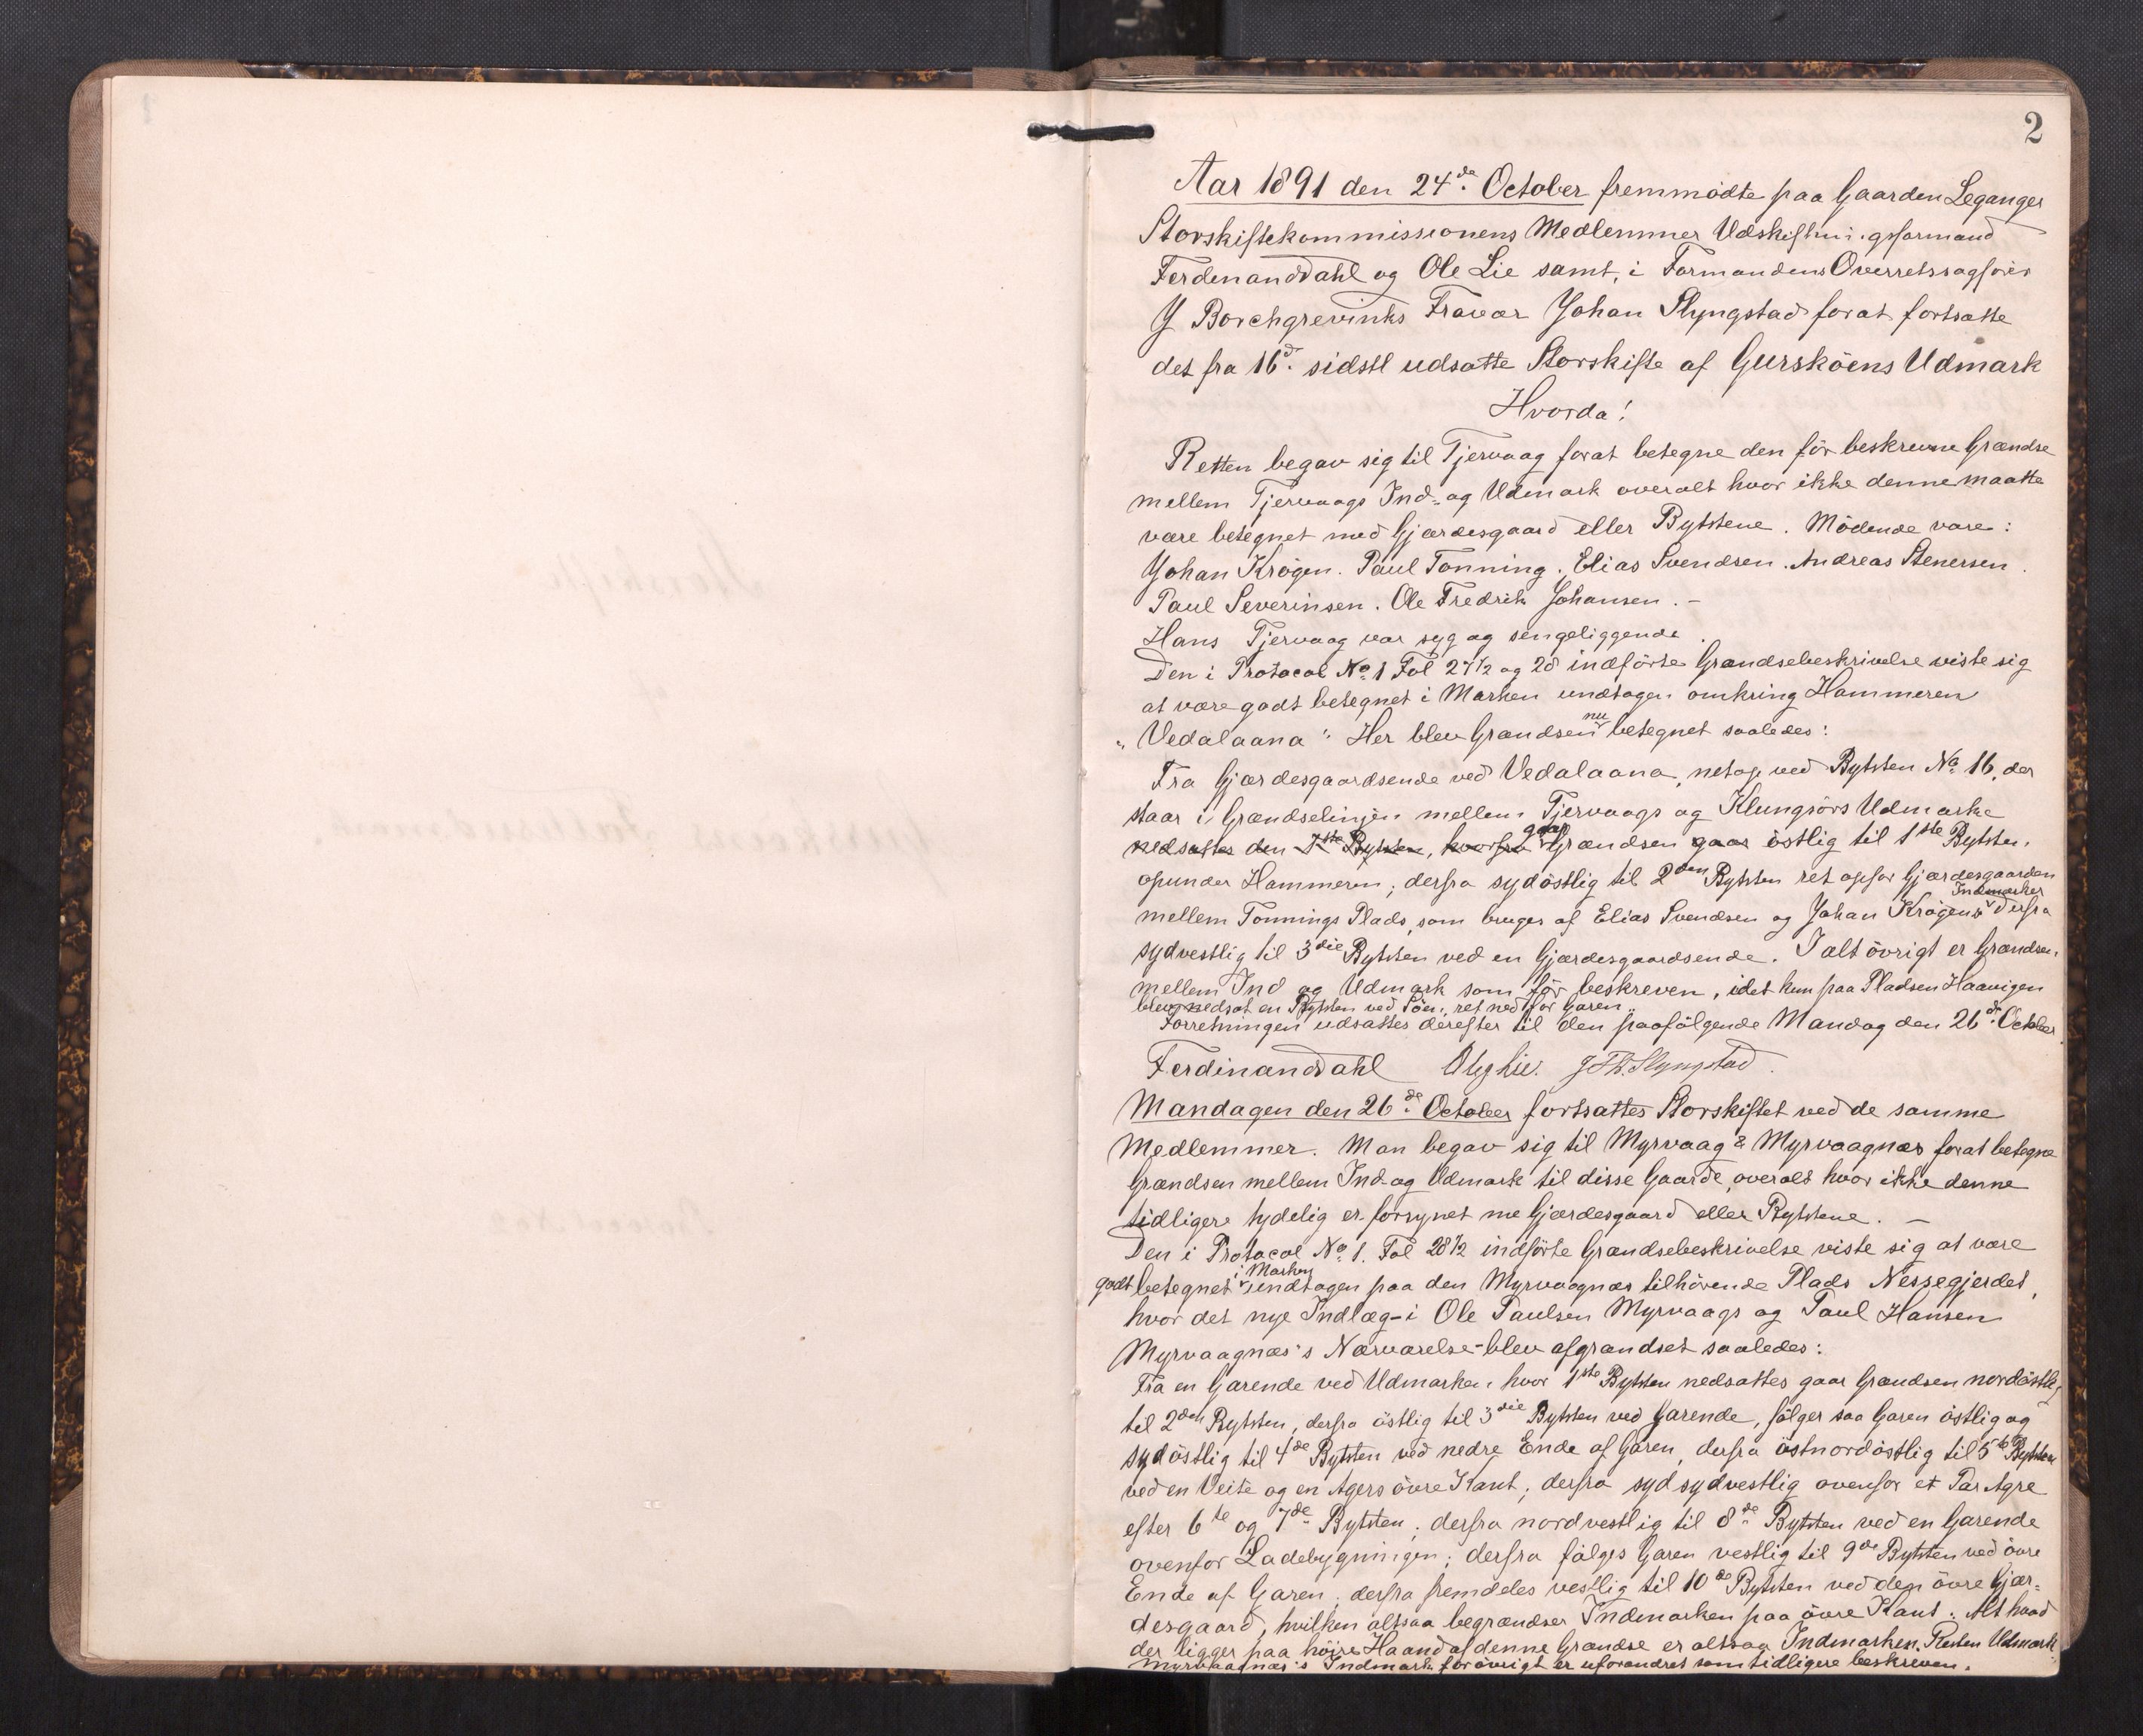 2
Aar 1891 den 24de October fremmødte paa Gaarden Leganger
Storskiftekommissionens Medlemmer Udskiftningsformand
Ferdinand Dahl og Ole Lie samt, i Formandens Overretssagfører
Y Borchgrevinks Fravær Johan Slyngstad forat fortsætte
det fra 16de sidstl udsatte Storskifte af Gurskøens Udmark
Hvorda!
Retten begav sig til Tjervaag forat betegne den før beskrevne Grændse
mellem Tjervaags Ind- og Udmark overalt hvor ikke denne maatte
være betegnet med Gjærdesgaard eller Bytstene. Mødende vare:
Johan Krøgen. Paul Tonning. Elias Svendsen. Andreas Stenersen.
Paul Severinsen. Ole Fredrik Johansen. -
Hans Tjervaag var syg og sengeliggende.
Den i Protocol No 1 Fol 27 1/2 og 28 indførte Grændsebeskrivelse viste sig
at være godt betegnet i Marken undtagen omkring Hammeren
"Vedalaana". Her blev Grændsen nu betegnet saaledes:
Fra Gjærdesgaardsende ved Vedalaana, netop ved Bytsten No 16, der
staar i Grændselinjen mellem Tjervaags og Klungsørs Udmarke
nedsattes den 1ste Bytsten, hvorfra gaar Grændsen gaar østlig til 1ste Bytsten,
opunder Hammeren; derfra sydøstlig til 2den Bytsten ret opfor Gjærdesgaarden
mellem Tonnings Plads, som bruges af Elias Svendsen og Johan Krøgens Indmarker derfra
sydvestlig til 3die Bytsten ved en Gjærdesgaardsende. I alt øvrigt er Grændsen
mellem Ind og Udmark som før beskreven, idet kun paa Pladsen Haavigen
blev nedsat en Bytsten ved Søen, ret nedfor Garen.
Forretningen udsattes derefter til den paafølgende Mandag den 26de October.
Ferdinand Dahl Ole Lie. J Th. Slyngstad.
Mandagen den 26de October fortsattes Storskiftet ved de samme
Medlemmer. Man begav sig til Myrvaag & Myrvaagnæs forat betegne
Grændsen mellem Ind- og Udmark til disse Gaarde, overalt hvor ikke denne
tidligere tydelig er forsynet me Gjærdesgaard eller Bytstene. -
Den i Protocol No 1. Fol 28 1/2 indførte Grændsebeskrivelse viste sig at være
godt betegnet i Marken undtagen paa den Myrvaagnæs tilhørende Plads Nessegjerdet,
hvor det nye Indlæg - i Ole Paulsen Myrvaags og Paul Hansen
Myrvaagnæs's Nærværelse - blev afgrændset saaledes:
Fra en Garende ved Udmarken hvor 1ste Bytsten nedsattes gaar Grændsen nordøstlig
til 2den Bytsten, derfra østlig til 3die Bytsten ved Garende, følger saa Garen østlig og
sydøstlig til 4de Bytsten ved nedre Ende af Garen, derfra østnordøstlig til 5te Bytsten
ved en Veite og en Agers øvre Kant; derfra sydsydvestlig ovenfor et Par Agre
efter 6te og 7de Bytsten; derfra nordvestlig til 8de Bytsten ved en Garende
ovenfor Ladebygningen; derfra følges Garen vestlig til 9de Bytsten ved øvre
Ende af Garen; derfra fremdeles vestlig til 10de Bytsten ved den øvre Gjær-
desgaard, hvilken altsaa begrændser Indmarken paa øvre Kant. Alt hvad
der ligger paa høire Haand af denne Grændse er altsaa Indmarken, Resten Udmark.
Myrvaagnæs's Indmark forøvrigt er uforandret som tidligere beskreven.